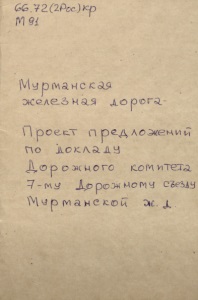 66.72(2Рос)кр
М91
Мурманская
железная дорога.
Проект предложений
по докладу
Дорожного комитета
7-му Дорожному съезду
Мурманской ж.д